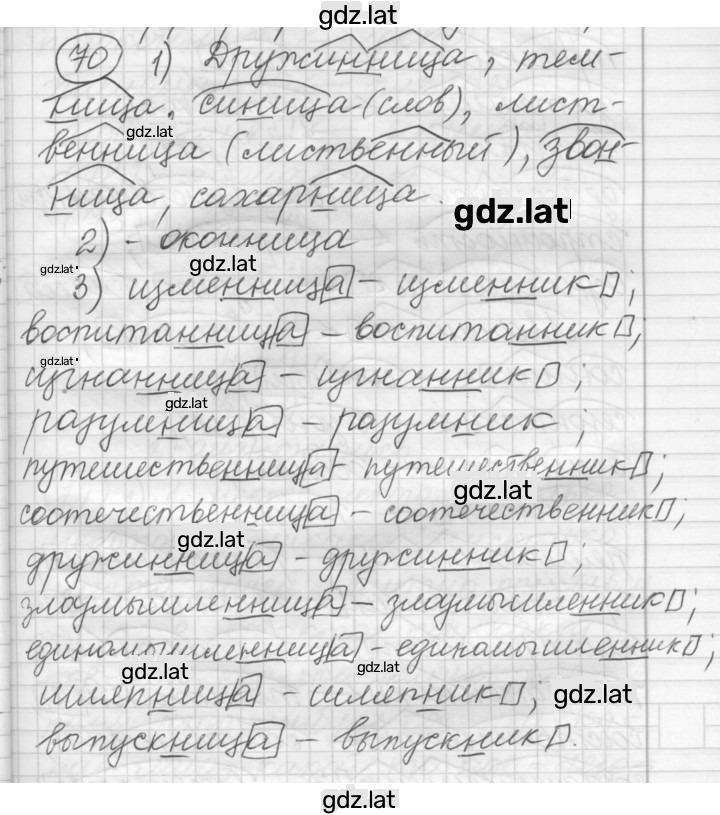 gdz.lat
70 1) Дружинница, тем-
ница, синица (слов), лист-
gdz.lat
венница (лиственный), звон-
ница, сахарница.
gdz.lat
2) - оконница
gdz.lat
gdz.lat
3) изменница - изменник;
воспитанница - воспитанник;
gdz.lat
изгнанница - изгнанник;
gdz.lat
разумница - разумник;
путешественница - путешественник;
gdz.lat
соотечественница - соотечественник;
gdz.lat
дружинница - дружинник;
злоумышленница - злоумышленник;
единомышленница - единомышленник;
gdz.lat
gdz.lat
шляпница - шляпник;
gdz.lat
выпускница - выпускник.
gdz.lat